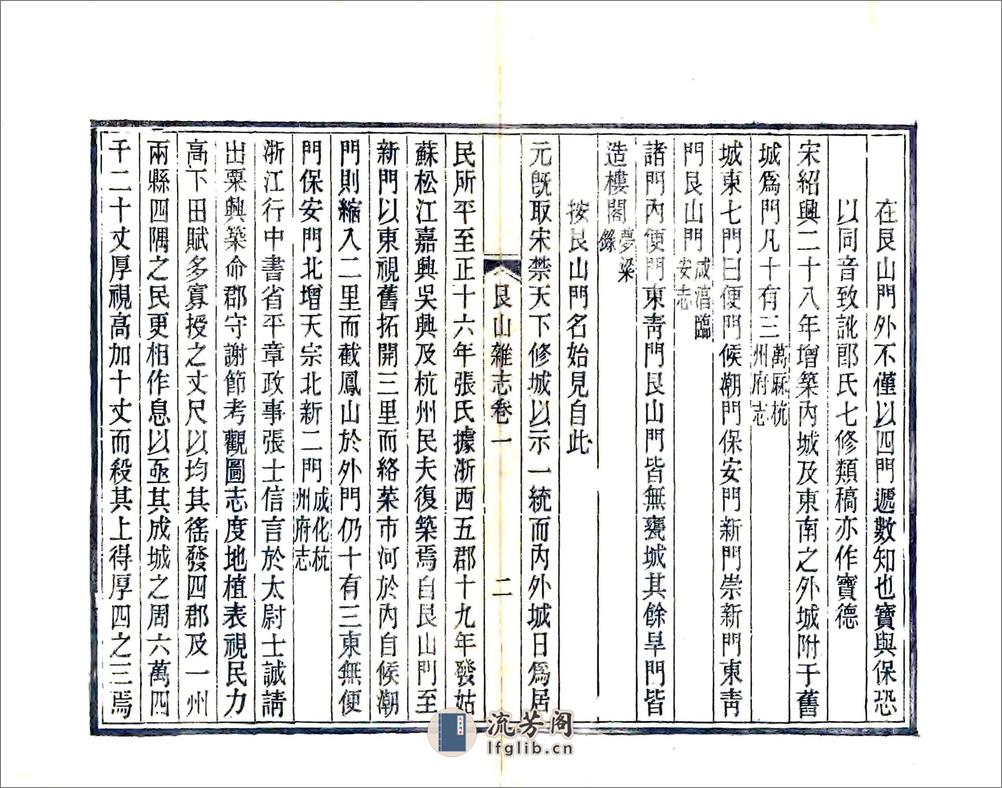 在艮山門外不僅以四門遞數知也寶與保恐
以同音致訛郎氏七修類稿亦作寶德
宋紹興二十八年增築內城及東南之外城附于舊
城爲門凡十有三萬厤杭州府志
城東七門曰便門候潮門保安門新門崇新門東靑
門艮山門咸淳臨安志
諸門內便門東靑門艮山門皆無甕城其餘旱門皆
造樓閣夢粱錄
按艮山門名始見自此
元旣取宋禁天下修城以示一統而內外城日爲居
艮山雜志卷一
二
民所平至正十六年張氏據浙西五郡十九年發姑
蘇松江嘉興吳興及杭州民夫復築焉自艮山門至
新門以東視舊拓開三里而絡菜市河於內自候潮
門則縮入二里而截鳳山於外門仍十有三東無便
門保安門北增天宗北新二門成化杭州府志
浙江行中書省平章政事張士信言於太尉士誠請
出粟興築命郡守謝節考觀圖志度地植表視民力
高下田賦多寡授之丈尺以均其徭發四郡及一州
兩縣四隅之民更相作息以亟其成城之周六萬四
千二十丈厚視高加十丈而殺其上得厚四之三焉
流芳阁
lfglib.cn